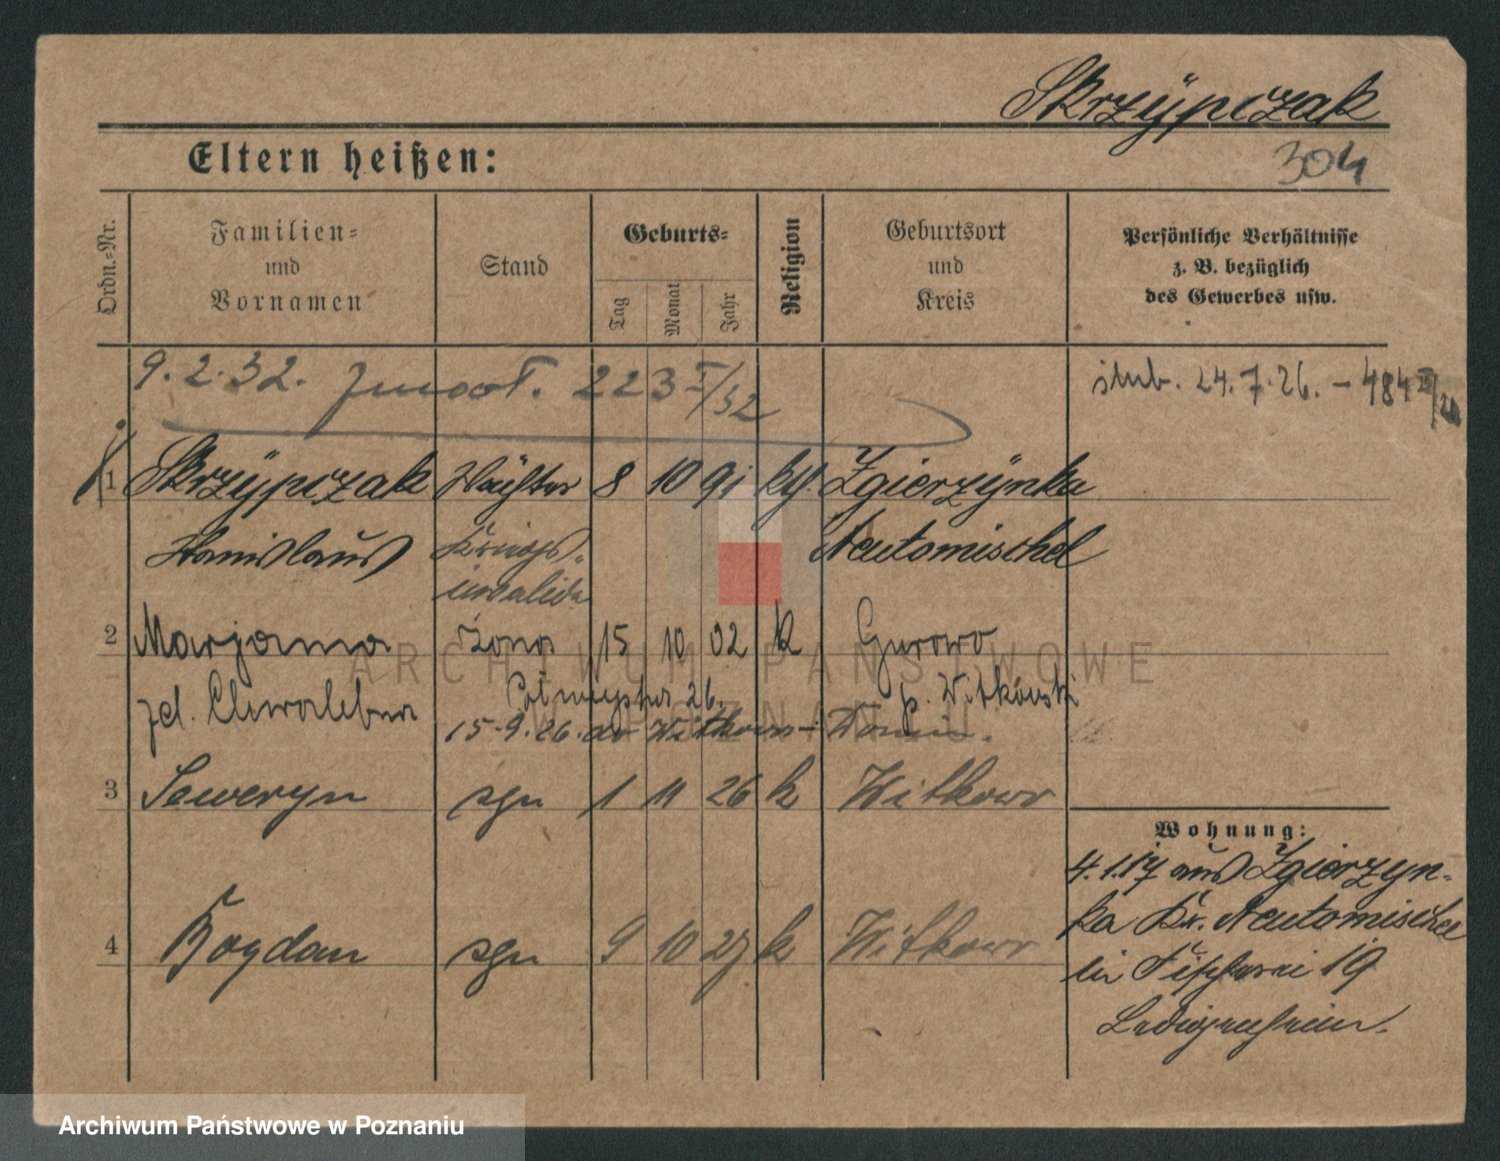 Skrzÿpczak
304
Eltern heißen:
Ordn.-Nr.
Familien-
und
Vornamen
Stand
Geburts-
Tag
Monat
Jahr
Religion
Geburtsort
und
Kreis
Persönliche Verhältnisse
z. B. bezüglich
des Gewerbes usw.
9.2.32. 223 I/32
ślub. 24.7.26. – 484
1 Skrzÿpczak Wächter 8 10 91 kth. Zgierzÿnka
Stanislaus Kriegs- Neutomischel
invalide
2 Marjanna żona 15 10 02 k Gurowo
zd. Chwalebna 26. p. Witkowski
15.9.26. do Witkowa
3 Seweryn syn 1 11 26 k Witkowo
4 Bogdan syn 9 10 27 k Witkowo
Wohnung:
4.1.17 aus Zgierzyn-
ka Kr. Neutomischel
bei Fischerei 19
Ledigenheim.
ARCHIWUM PAŃSTWOWE
W POZNANIU
Archiwum Państwowe w Poznaniu